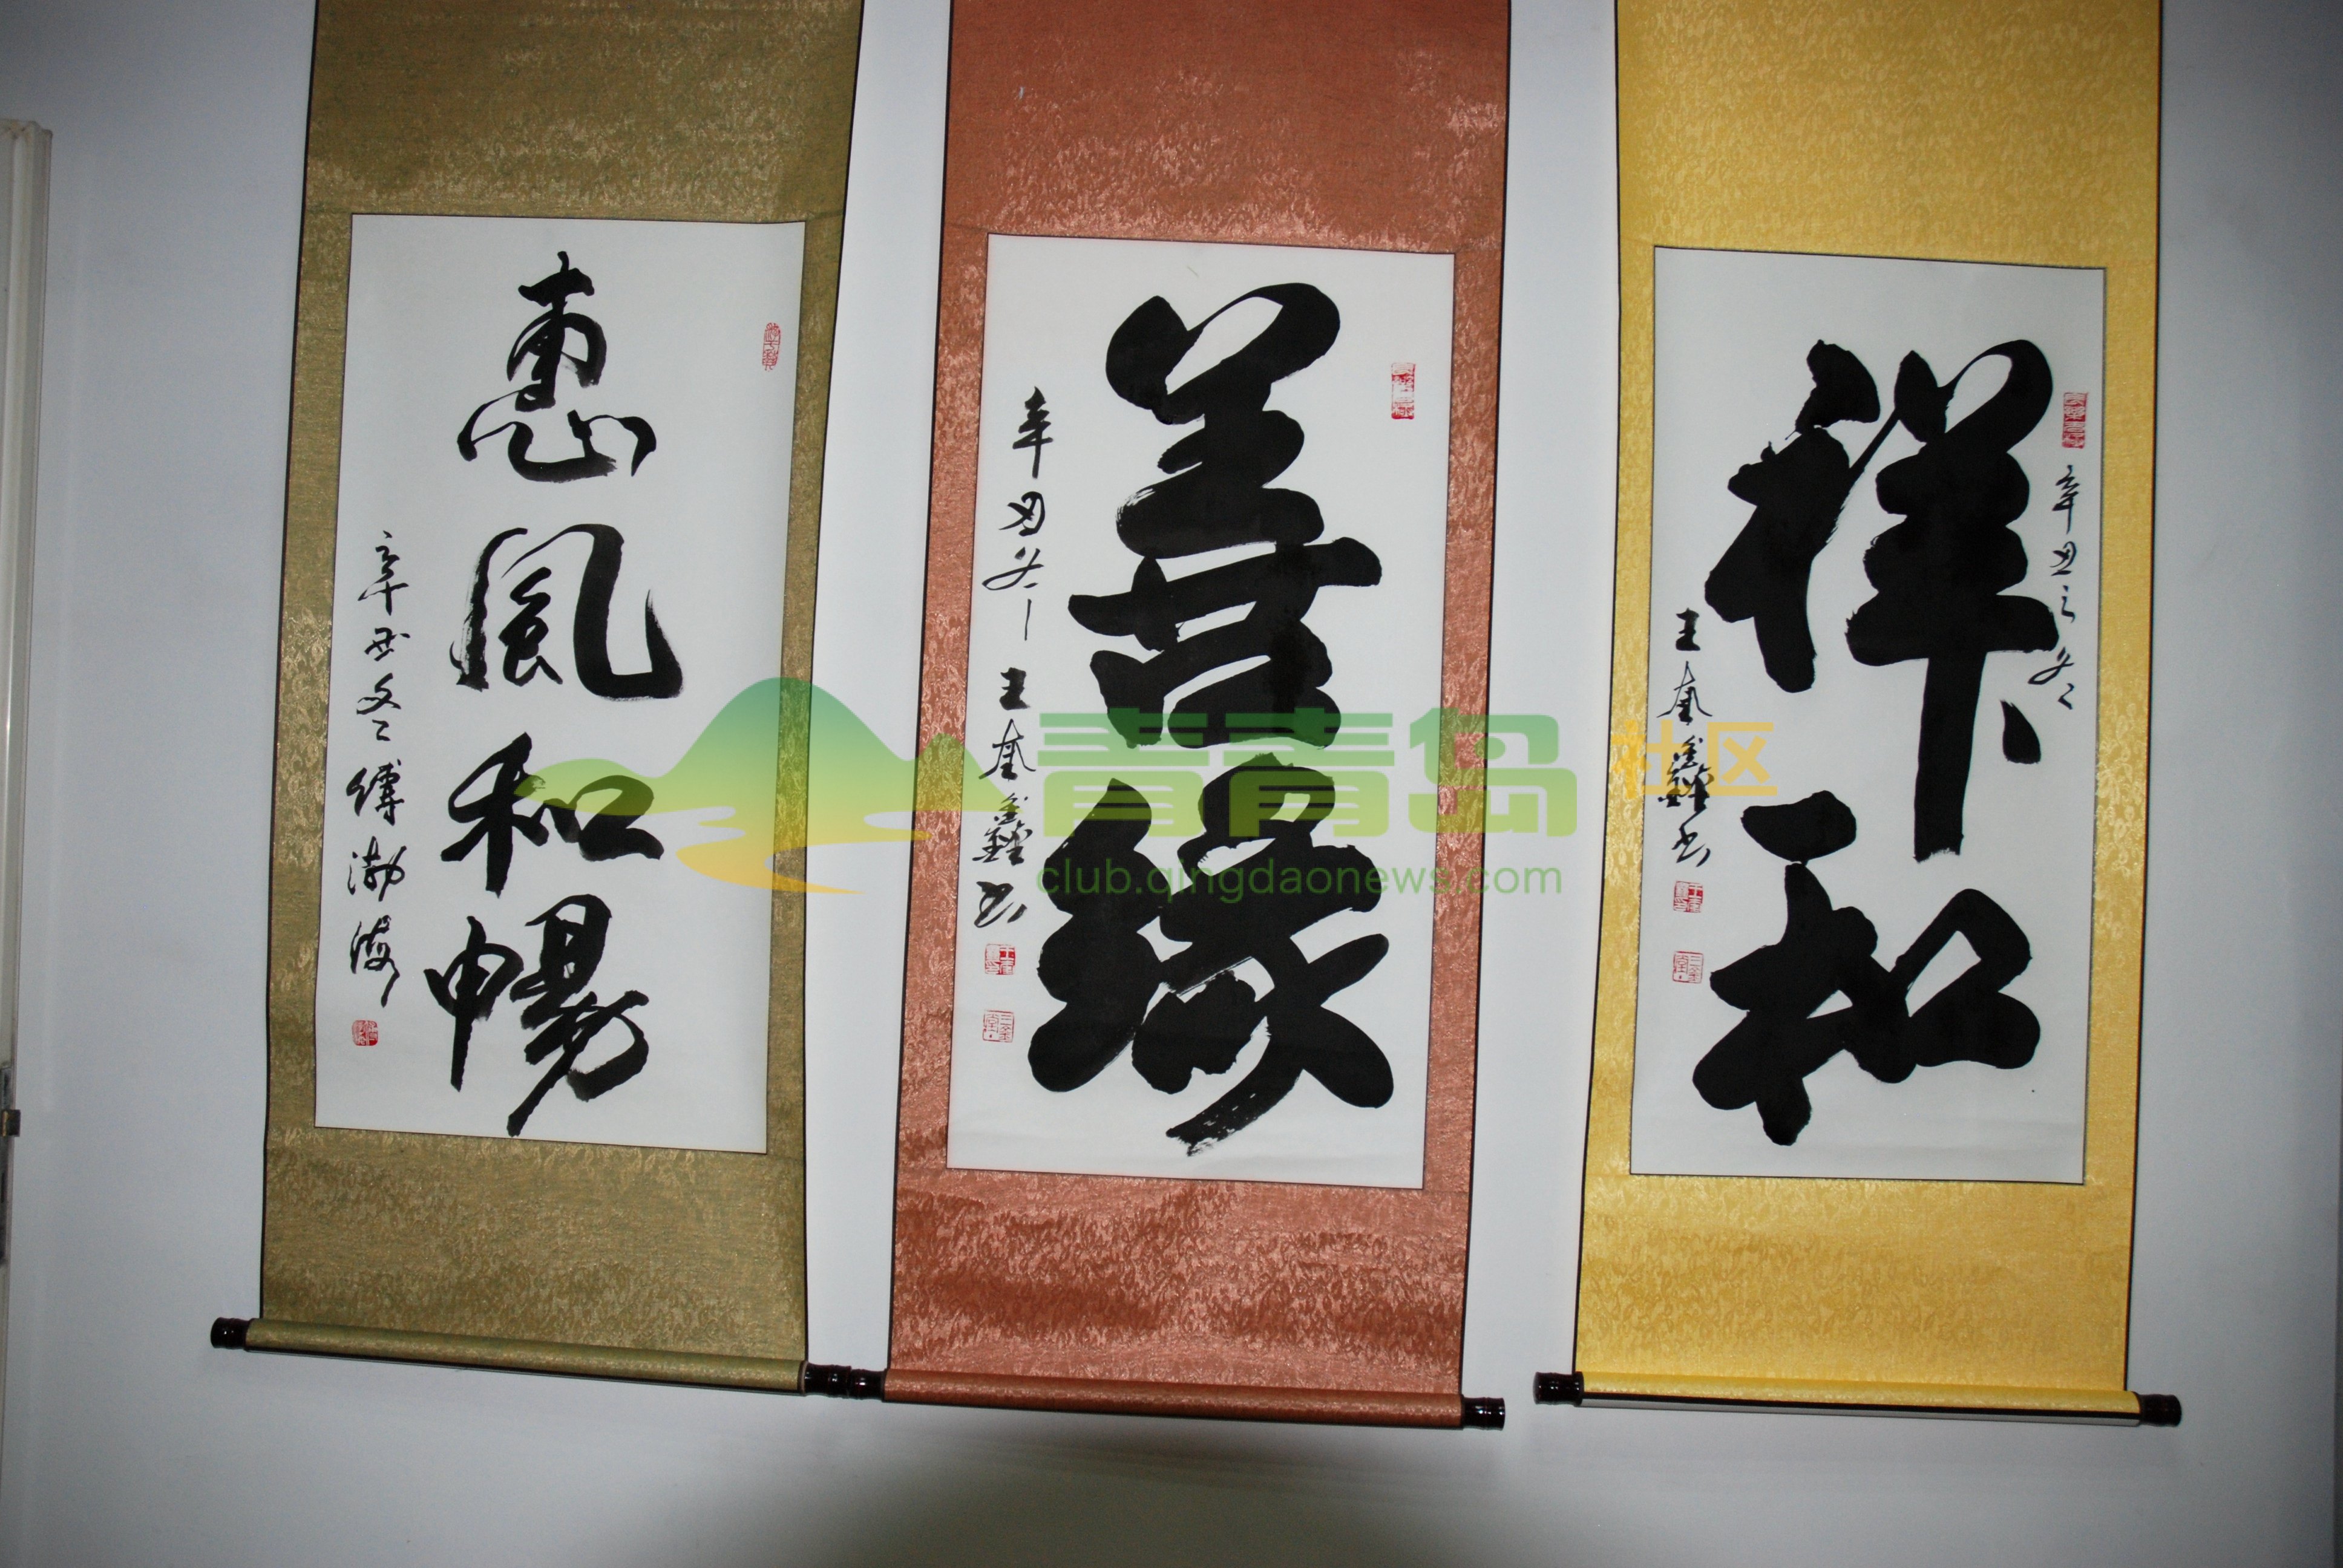 惠風和暢
辛丑冬傅渤海
善缘
辛丑冬一王奎鑫书
祥和
辛丑之冬
王奎鑫书
青青岛社区
club.qingdaonews.com